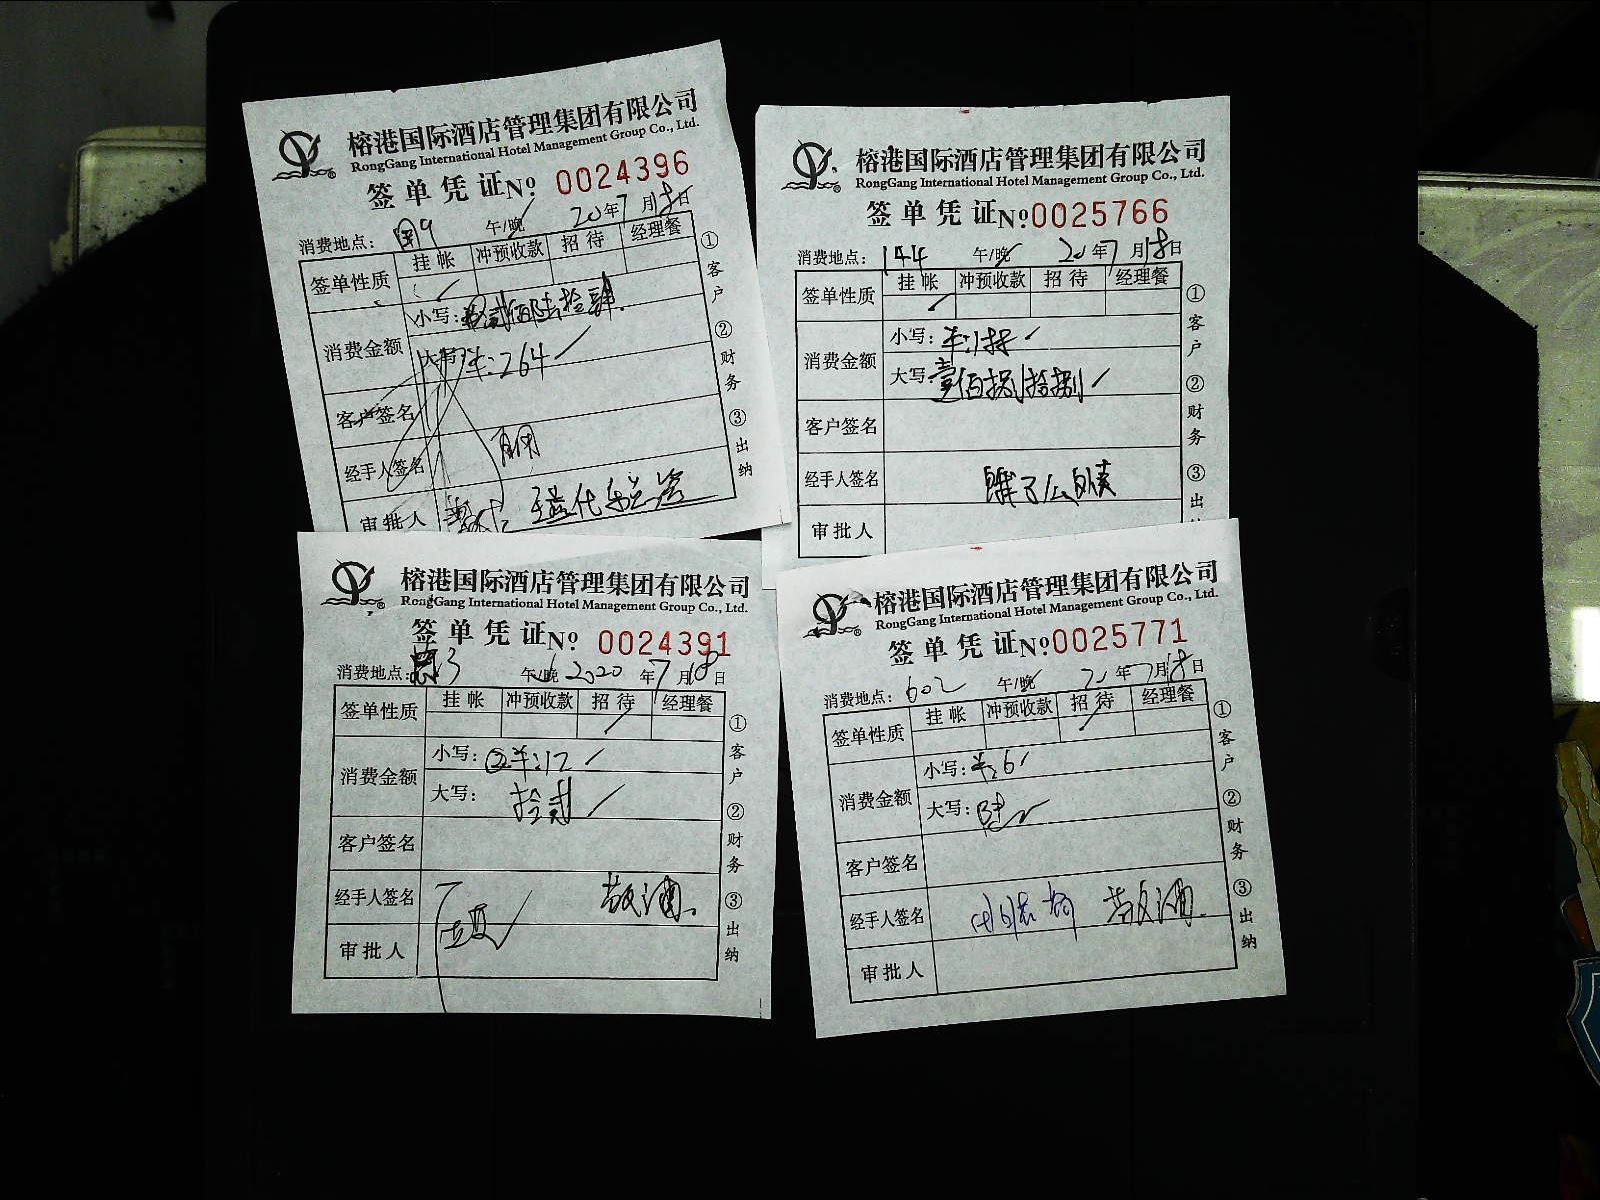 榕港国际酒店管理集团有限公司
RongGang International Hotel Management Group Co., Ltd.
签单凭证 № 0024396
消费地点: 午/晚 20年7月18日
签单性质 挂帐 冲预收款 招待 经理餐
✓
消费金额 小写: 贰佰陆拾肆
大写: ¥:264
客户签名
经手人签名
审批人
①客户 ②财务 ③出纳
榕港国际酒店管理集团有限公司
RongGang International Hotel Management Group Co., Ltd.
签单凭证 №0025766
消费地点: 144 午/晚 20年7月18日
签单性质 挂帐 冲预收款 招待 经理餐
✓
消费金额 小写: ¥:188
大写: 壹佰捌拾捌
客户签名
经手人签名
审批人
①客户 ②财务 ③出
榕港国际酒店管理集团有限公司
RongGang International Hotel Management Group Co., Ltd.
签单凭证 № 0024391
消费地点: 午/晚 2020年7月18日
签单性质 挂帐 冲预收款 招待 经理餐
✓
消费金额 小写: ¥:12
大写: 拾贰
客户签名
经手人签名
审批人
①客户 ②财务 ③出纳
榕港国际酒店管理集团有限公司
RongGang International Hotel Management Group Co., Ltd.
签单凭证 №0025771
消费地点: 602 午/晚 20年7月18日
签单性质 挂帐 冲预收款 招待 经理餐
✓
消费金额 小写: ¥:6
大写: 陆
客户签名
经手人签名
审批人
①客户 ②财务 ③出纳